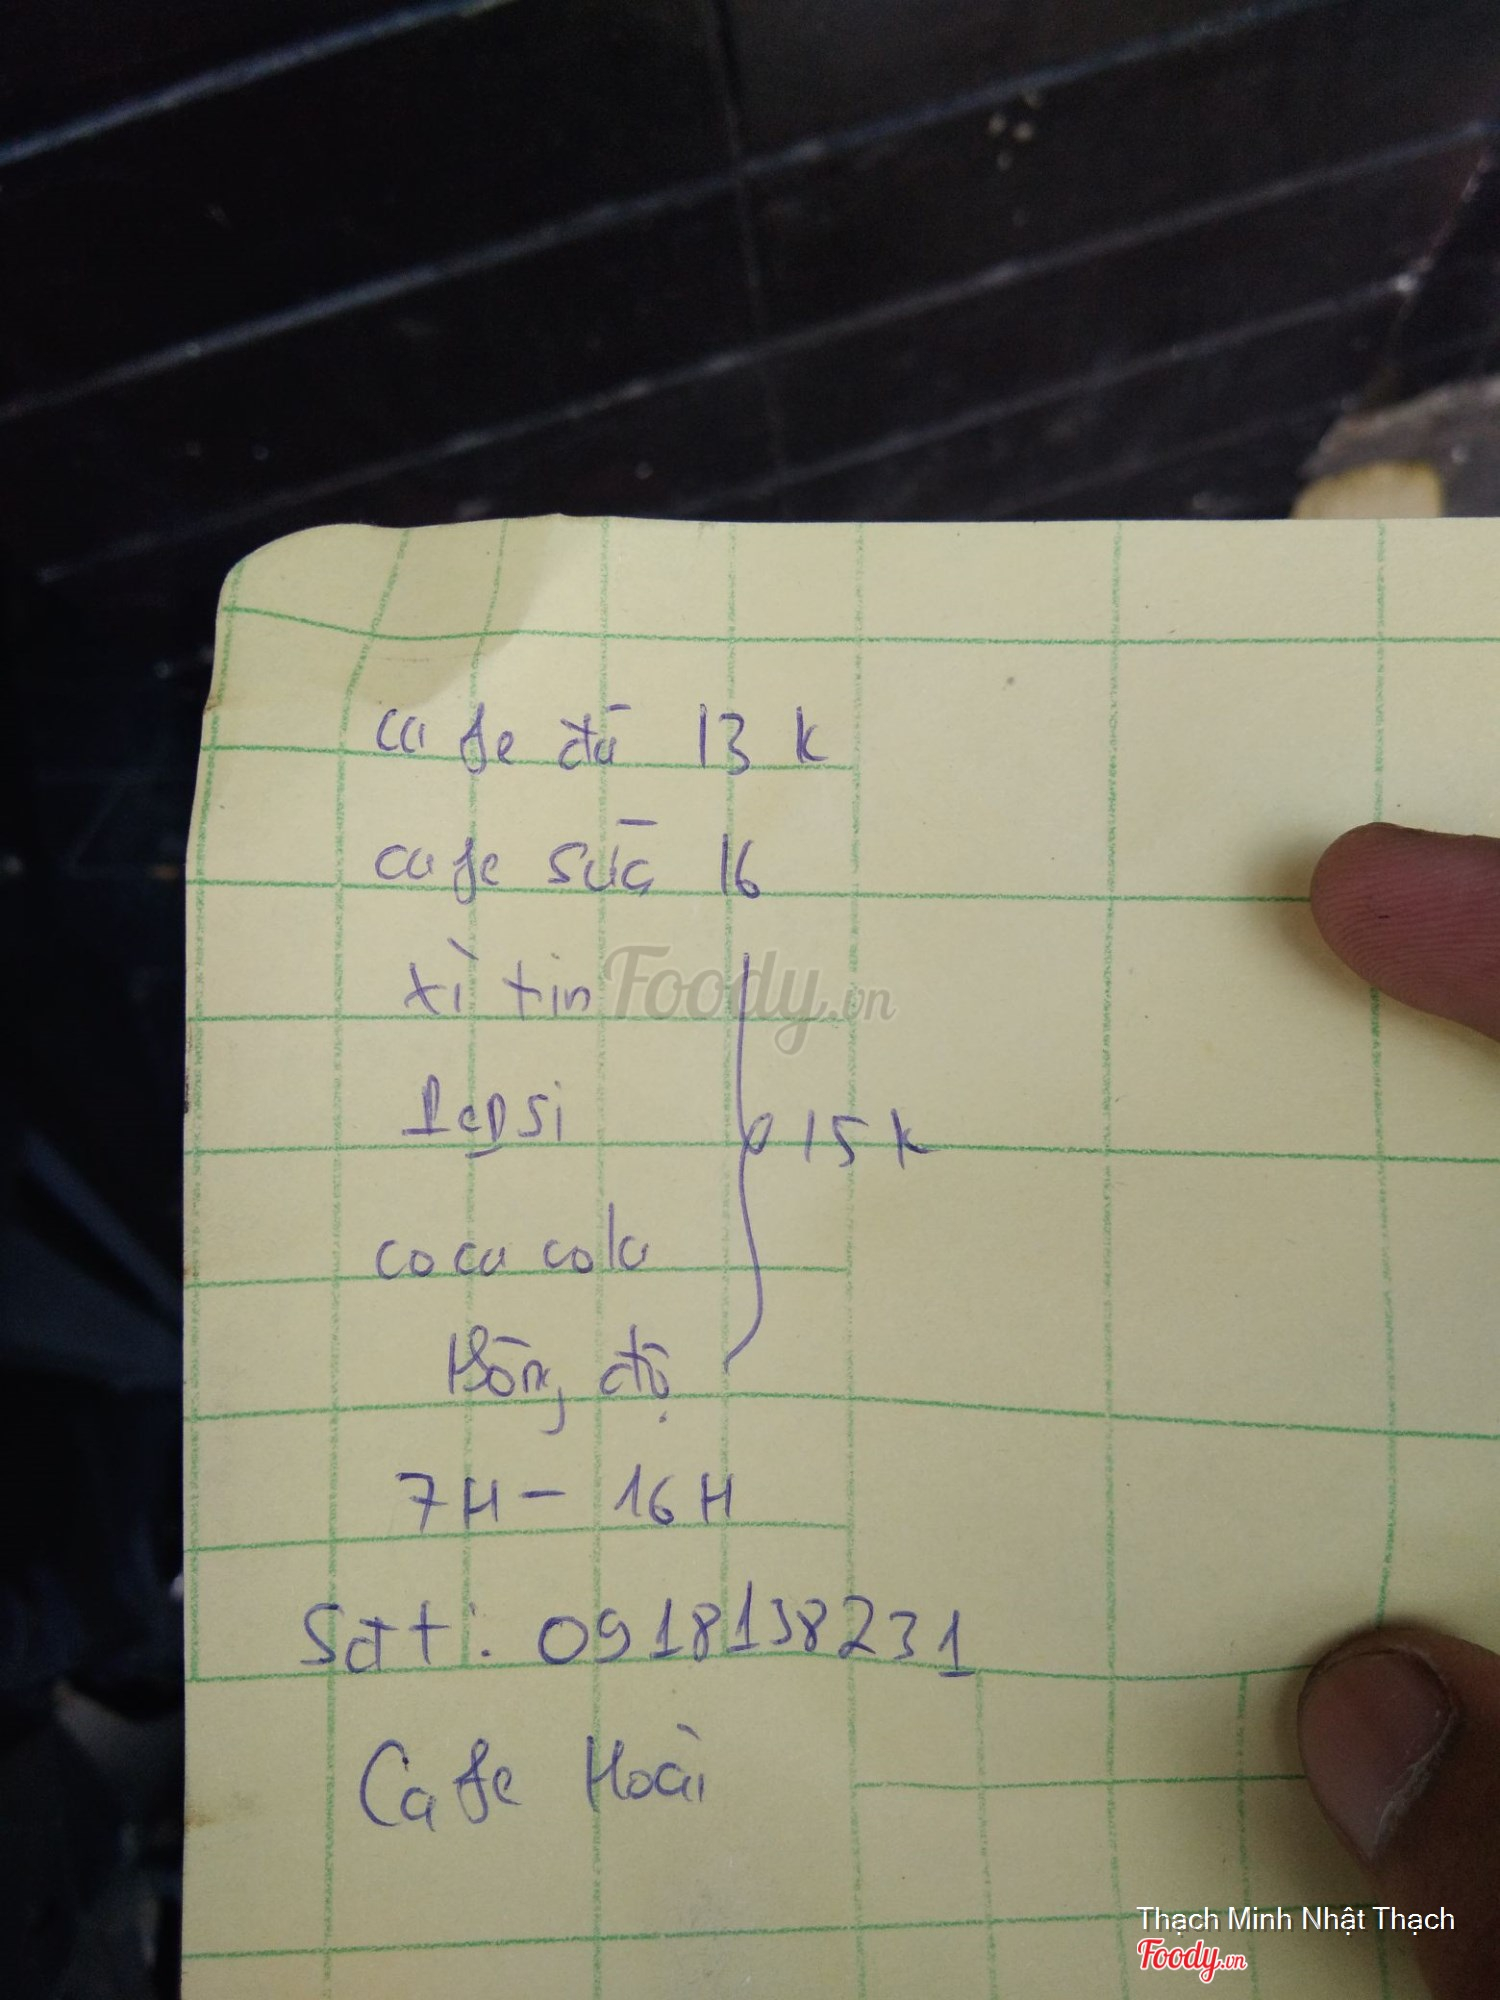 ca fe đá 13 k
cafe sữa 16
xì tin
Pepsi
15 k
coca cola
Hồng độ
7H - 16H
Sđt: 0918138231
Cafe Hoài
Foody.vn
Thạch Minh Nhật Thạch
Foody.vn